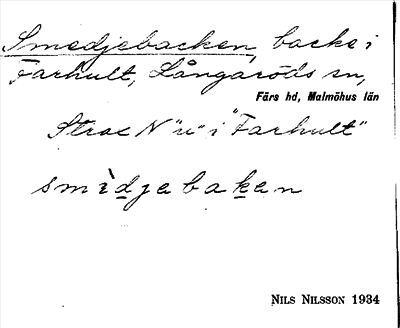 Smedjebacken, backe i
Farhult, Långaröds sn,
Färs hd, Malmöhus län
Strax N "u" i "Farhult"
smìdjebaken
NILS NILSSON 1934